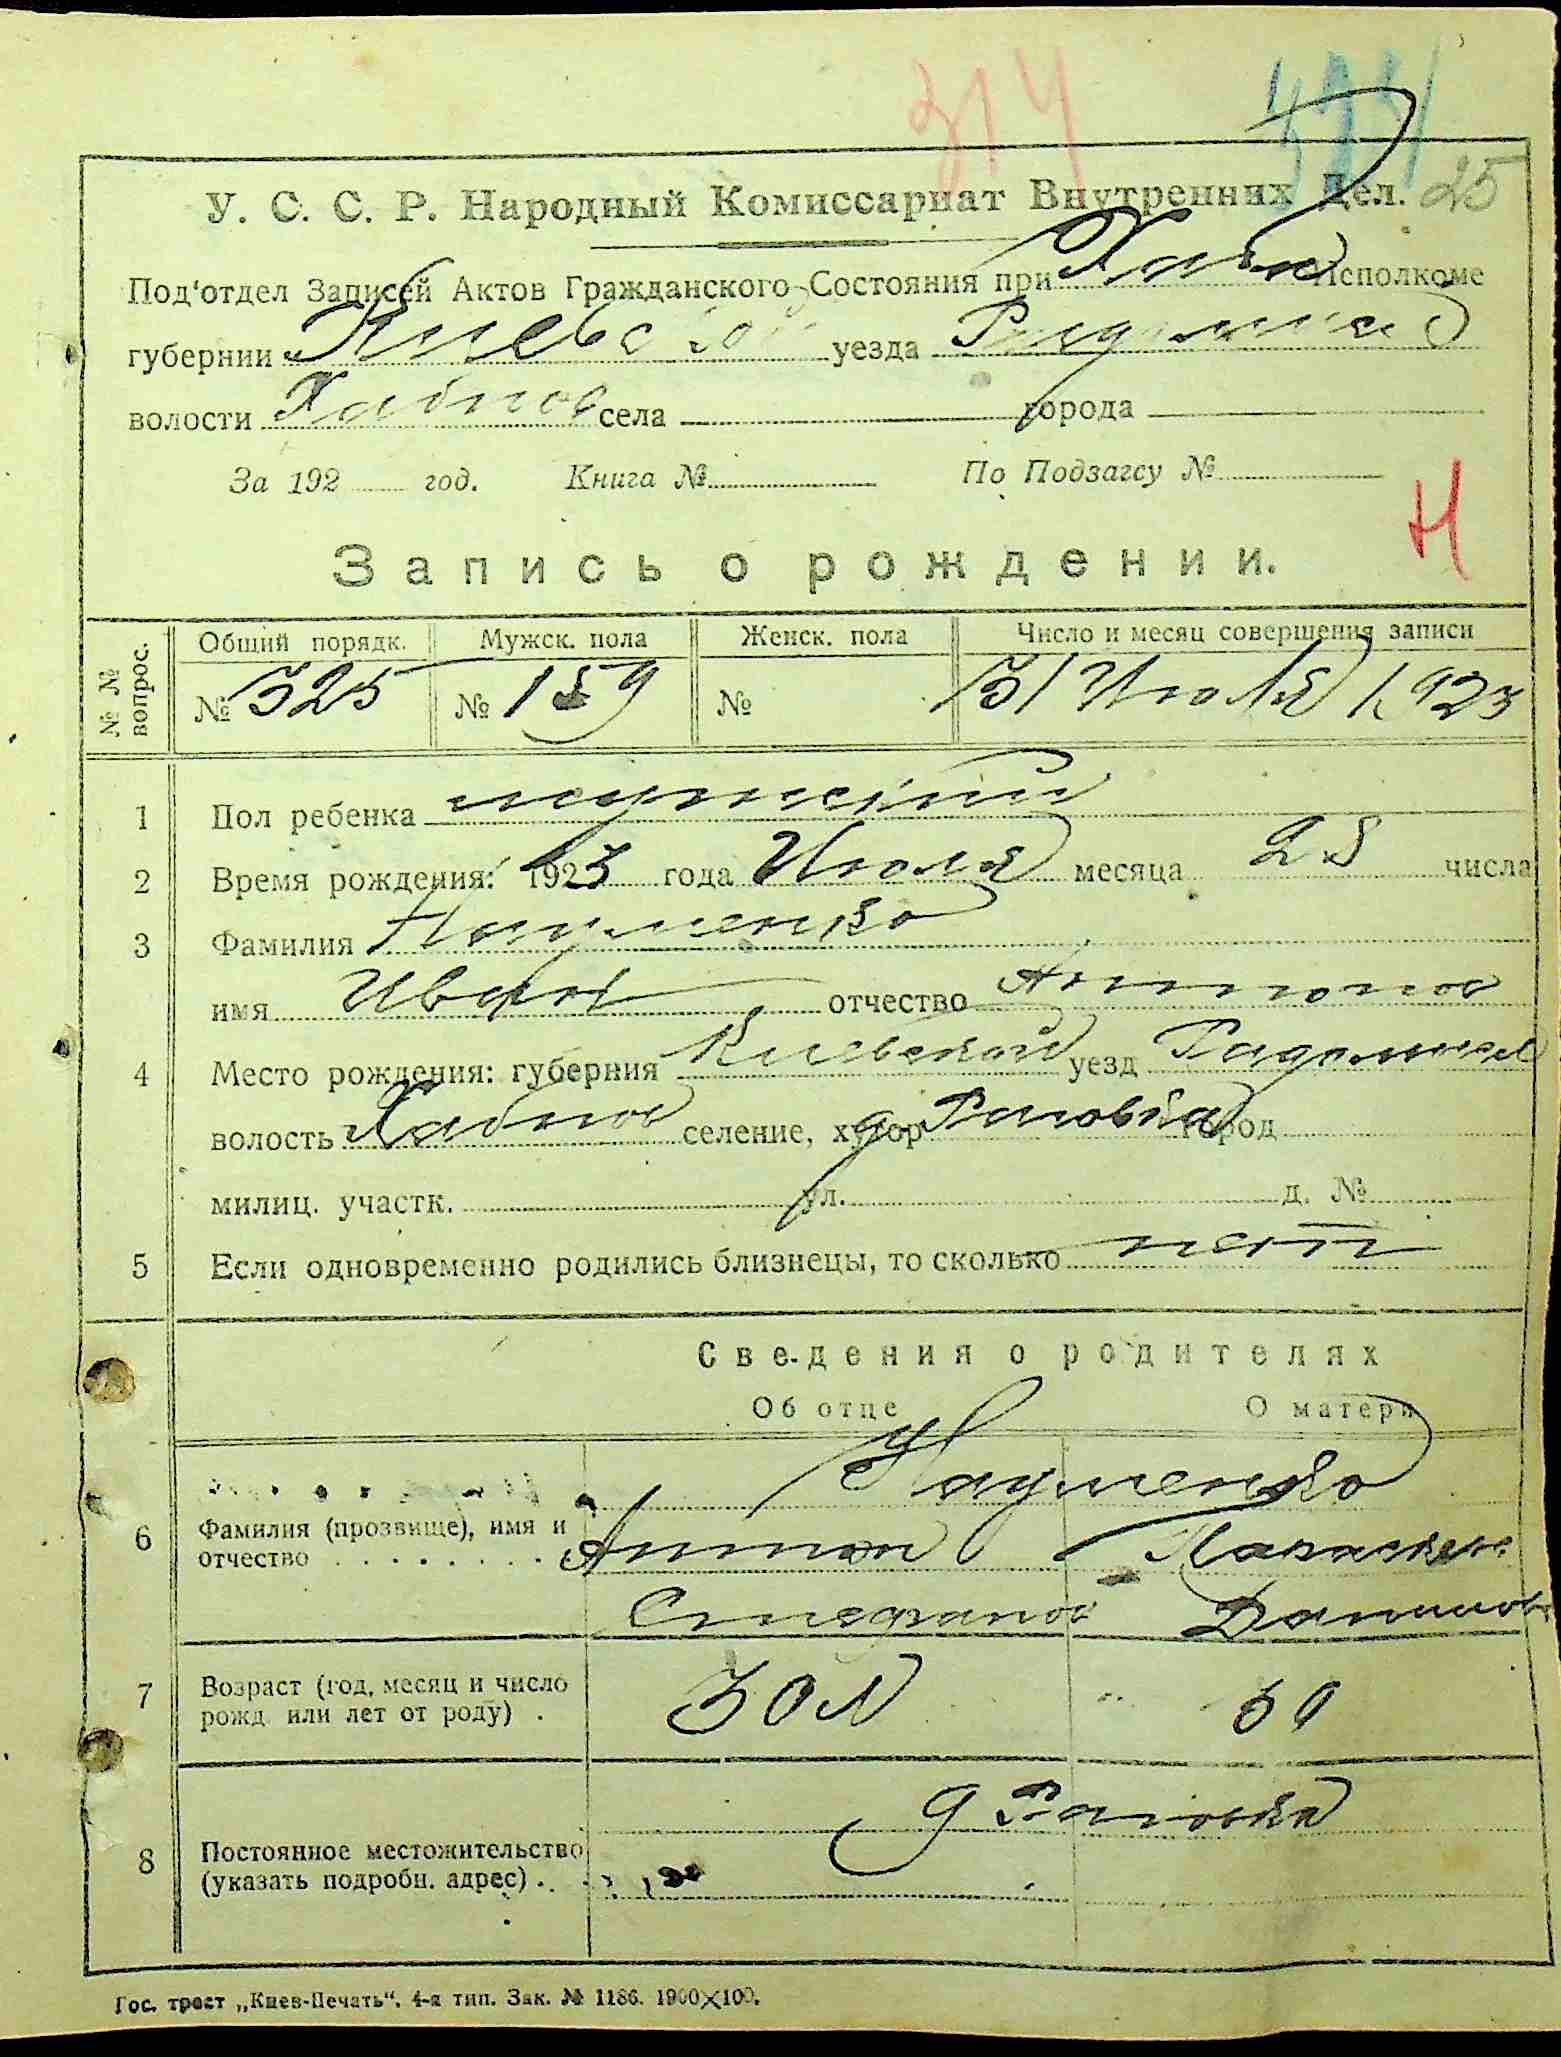 314
25
У. С. С. Р. Народный Комиссариат Внутренних Дел.
Под'отдел Записей Актов Гражданского Состояния при Исполкоме
губернии Киевской уезда
волости Хабнов села города
За 192 год. Книга № По Подзагсу №
Н
Запись о рождении.
№ № вопрос.
Общий порядк. Мужск. пола Женск. пола Число и месяц совершения записи
№ 325 № 159 № 31 Июля 1923
1 Пол ребенка мужский
2 Время рождения: 1923 года Июля месяца 28 числа
3 Фамилия Науменко
имя Иван отчество Антонов
4 Место рождения: губерния Киевской уезд Радомысл
волость Хабнов селение, хутор д. Раговка город
милиц. участк. ул. д. №
5 Если одновременно родились близнецы, то сколько нет
Сведения о родителях
Об отце О матери
Науменко
6 Фамилия (прозвище), имя и отчество Антон
Стефанов Данилов
7 Возраст (год, месяц и число рожд. или лет от роду) . 30 л 30
д Раговка
8 Постоянное местожительство
(указать подробн. адрес) . .
Гос. трест „Киев-Печать“. 4-я тип. Зак. № 1186. 1900×100.